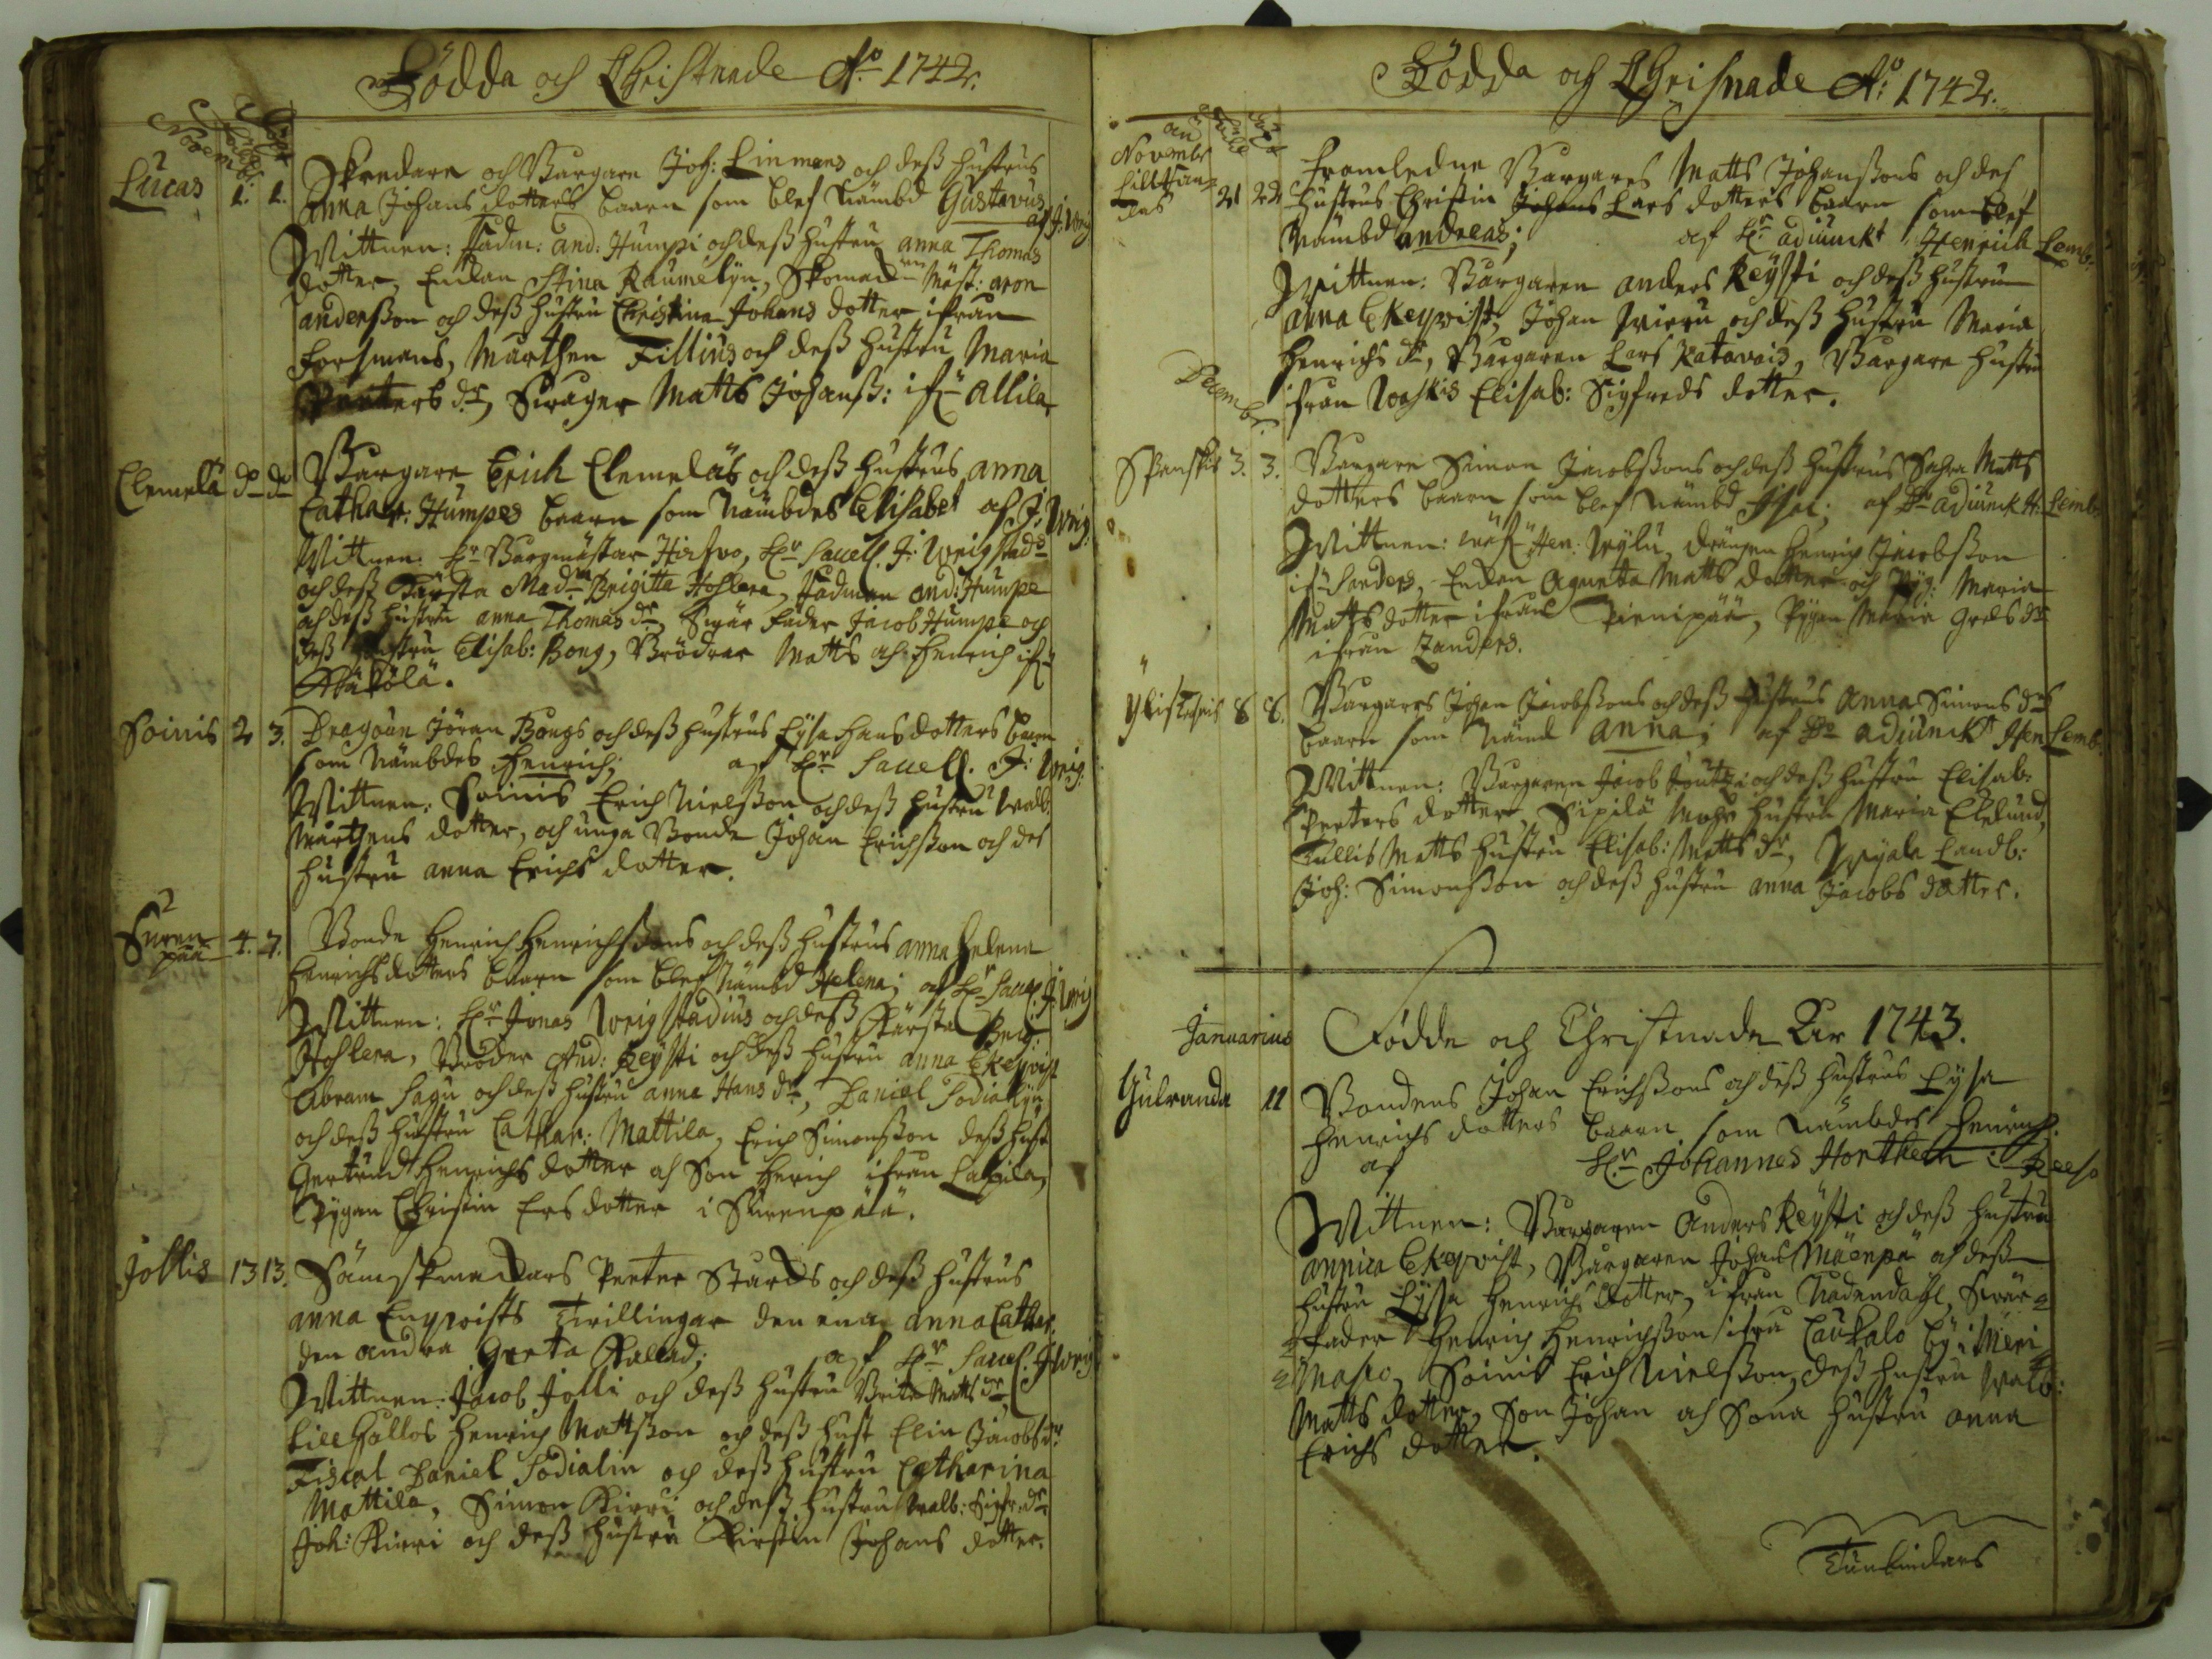 Födda och Christnade Ao 1742.
Novemb:
Lucas 1. 1. Skredare och Burgare Joh: Linmans och deß hustrus
Anna Johans dotters baarn som blef Nämbd Gustavus
af J. Wrig
Wittnen: Fadm: And: Humpi och deß hustru Anna Thomas
dotter, Enkan Stina Raumelÿn, Skomak: Mäst: Aron
Anderßon och deß hustru Christina Johans dotter ifrån
Forsmans, Mårthen Tillius och deß hustru Maria
Peeters dr, Swåger Matts Johanß: ifr Allila
Clemelä do do Burgare Erich Clemeläs och deß hustrus Anna
Cathar: Humpes baarn som Nämbdes Elisabet af J. Wrig:
Wittnen: Hr Borgmästar Hirfvo, Hr Sacell. J: Wrigstads
och deß Kärsta Madm Brigitta Hohlera, Fadmen And: Humpe
och deß hustru Anna Thomas dr, Swär Fader Jacob Humpe och
deß hustru Elisab: Bong, Brödrar Matts och Henrich ifr
Soinis 2 3. Dragoun Jöran Bongs och deß hustrus Lysa Hans dotters baarn
som Nämbdes Henrich; af Hr Sacell. J: Wrig:
Wittnen: Soinis Erich Nielßon och deß hustru Walb:
Mårthens dotter, och unga Bonde Johan Erichßon och des
hustru Anna Erichs dotter.
Suren
pää 4. 7. Bonde Henrich Henrichßons och deß hustrus Anna Helena
Henrichs dotters baarn som blef Nämbd Helena; af Hr Sacel. J: Wrig
Wittnen: Hr Jonas Wrigstadius och deß Kärsta Brig:
Hohlera, Broder And: Keÿsti och deß hustru Anna Ekeqvist
Abram Sagu och deß hustru Anna Hans dr, Daniel Sodialÿn
och deß hustru Cathar: Mattila, Erich Simonßon deß hust
Gertrud Henrichs dotter och Son Henrich ifrån Lalpila,
Pÿgan Christin Ers dotter i Surenpää.
Jollis 13 13. Sämskmakars Peeter Stards och deß hustrus
Anna Enqvists Twillingar den ena Anna Cathar
den andra Greta kallad; af Hr Sacel. J Wrig
Wittnen: Jacob Jolli och deß hustru Brita Matts dr,
Lill Hallos Henrich Mattßon och deß hust Elin Jacobs dr
Fiscal Daniel Sodialin och deß hustru Catharina
Mattila, Simon Kirri och deß hustru Walb: Sigfreds dr
Joh: Kirri och deß hustru Kirstin Johans dotter.
Födda och Chrisnade Ao: 1742.
Novembr
21 22 Framledne Burgares Matts Johanßons och des
hustrus Christin Johans Lars dotters baarn som blef
Nämbd Andreas; af Hr Adiunckt Henrich Lemb.
Wittnen: Burgaren Anders Keÿsti och deß hustru
Anna Ekeqvist, Johan Wirru och deß hustru Maria
Henrichs dr, Burgaren Lars Katavais, Burgare hustru
ifrån Washis Elisab: Sigfreds dotter.
Decembr.
Spanskis 3. 3. Burgare Simon Jacobßons och deß hustrus Sahra Matts
dotters baarn som blef Nämbd Isac; af Hr Adiunck H: Lemb:
Wittnen: Hen: Wÿlu, drängen Henrich Jacobßon
ifr Sanders, Enkan Agneta Matts dotter och Pÿg: Maria
Matts dotter ifrån Pienipää, Pÿgan Maria Greds dr
ifrån Zanders.
8 8. Burgares Johan Jacobßons och deß hustrus Anna Simons drs
baarn som Nämd Anna; af Hr Adiunckt Hen Lemb:
Wittnen: Burgaren Jacob Joutzi och deß hustru Elisab:
Peeters dotter, Sipilä Matts hustru Maria Ekelund,
Tullis Matts hustru Elisab: Matts dr, Wÿala Landb:
Joh: Simonßon och deß hustru Anna Jacobs dotter.
Januarius Födde och Christnade År 1743.
Gulranda 11 Bondens Johan Erichßons och deß hustrus Lysa
Henrichs dotters baarn som nämbdes Henrich.
af Hr Johannes Horthen i Reeso
Wittnen: Burgaren Anders Keÿsti och deß hustru
Annica Ekeqvist, Burgaren Johan Mäenpä och deß
hustru Lÿsa Henrichs dotter, ifrån Nådendahl, Swär=
=Fader Henrich Henrichßon ifrån Laukalo bÿ i Meri
=Masko, Soinis Erich Nielßon, deß hustru Walb:
Matts dotter, Son Johan och Sona hustru Anna
Erichs dotter.
Tunbindars